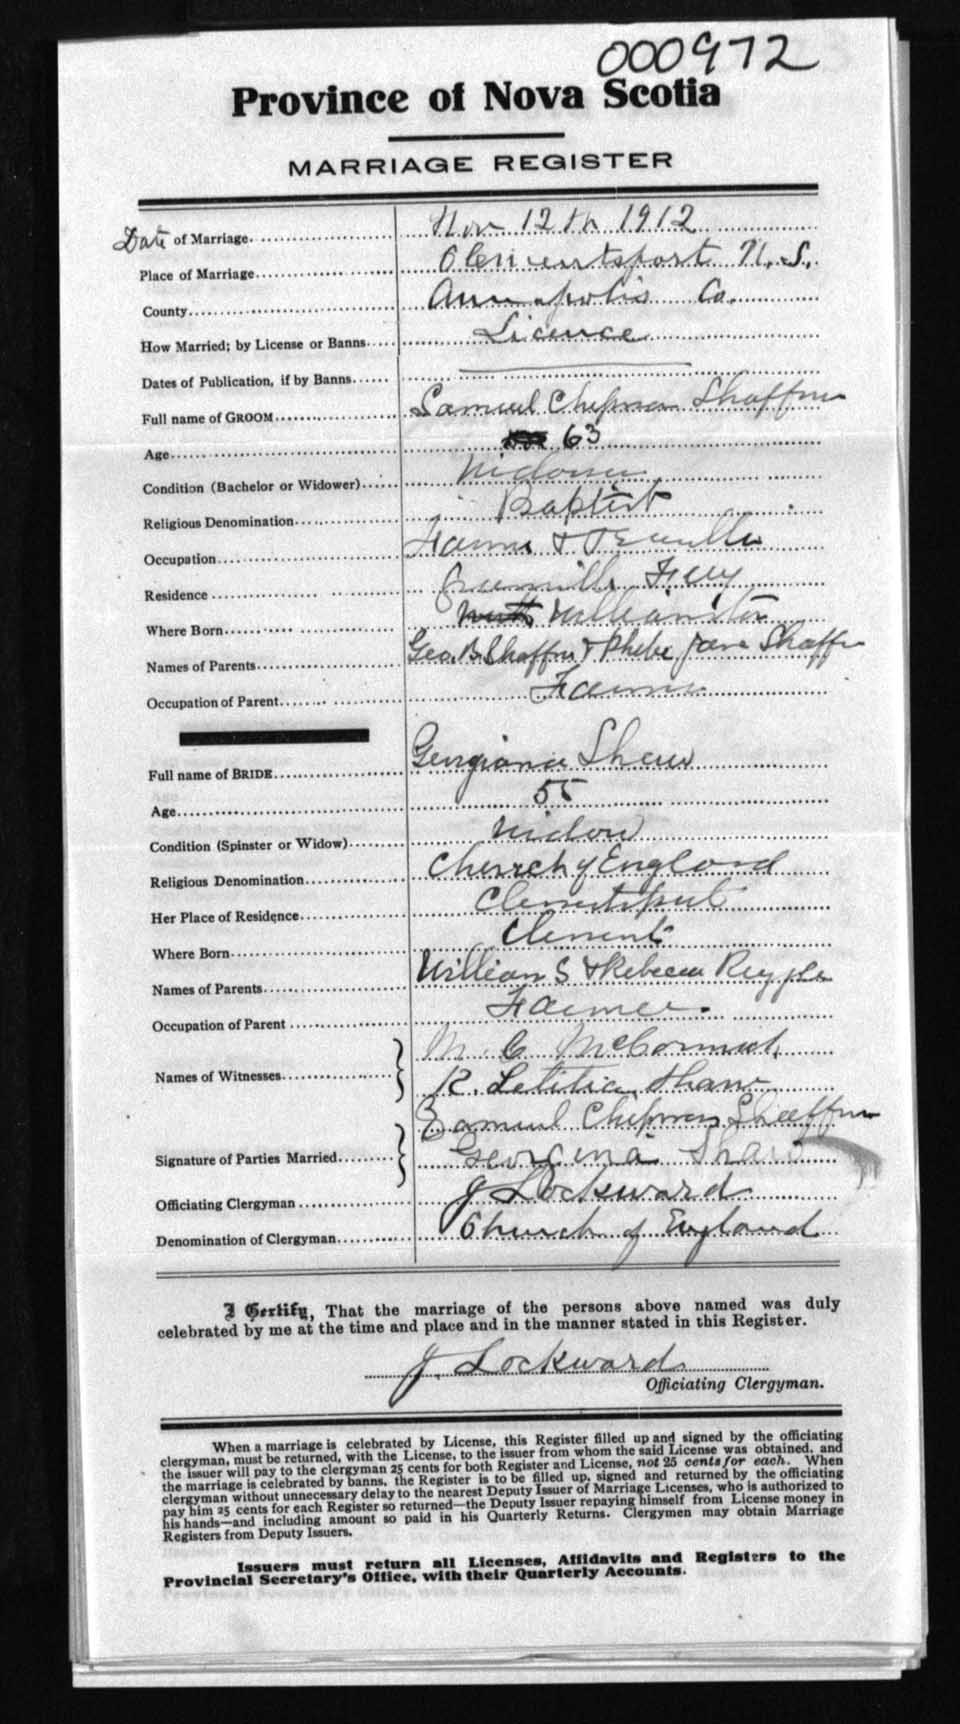 000972
Province of Nova Scotia
MARRIAGE REGISTER
Date of Marriage Nov 12th 1912
Place of Marriage Clementsport N.S.
County Annapolis Co.
How Married; by License or Banns Licence
Dates of Publication, if by Banns
Full name of GROOM Samuel Chipman Shaffner
Age 63
Condition (Bachelor or Widower) Widower
Religious Denomination Baptist
Occupation Farmer &
Residence Granville Ferry
Where Born Williamston
Names of Parents Geo. B Shaffner & Phebe Jane Shaffner
Occupation of Parent Farmer
Full name of BRIDE Georgiana Shaw
Age 55
Condition (Spinster or Widow) Widow
Religious Denomination Church of England
Her Place of Residence Clementsport
Where Born Clements
Names of Parents William S & Rebecca
Occupation of Parent Farmer
Names of Witnesses M. C McCormick
R. Letitia Shaw
Samuel Chipman Shaffner
Signature of Parties Married Georgina Shaw
Officiating Clergyman J Lockward
Denomination of Clergyman Church of England
I Certify, That the marriage of the persons above named was duly
celebrated by me at the time and place and in the manner stated in this Register.
J. Lockward
Officiating Clergyman.
When a marriage is celebrated by License, this Register filled up and signed by the officiating
clergyman, must be returned, with the License, to the issuer from whom the said License was obtained, and
the issuer will pay to the clergyman 25 cents for both Register and License, not 25 cents for each. When
the marriage is celebrated by banns, the Register is to be filled up, signed and returned by the officiating
clergyman without unnecessary delay to the nearest Deputy Issuer of Marriage Licenses, who is authorized to
pay him 25 cents for each Register so returned—the Deputy Issuer repaying himself from License money in
his hands—and including amount so paid in his Quarterly Returns. Clergymen may obtain Marriage
Registers from Deputy Issuers.
Issuers must return all Licenses, Affidavits and Registers to the
Provincial Secretary's Office, with their Quarterly Accounts.